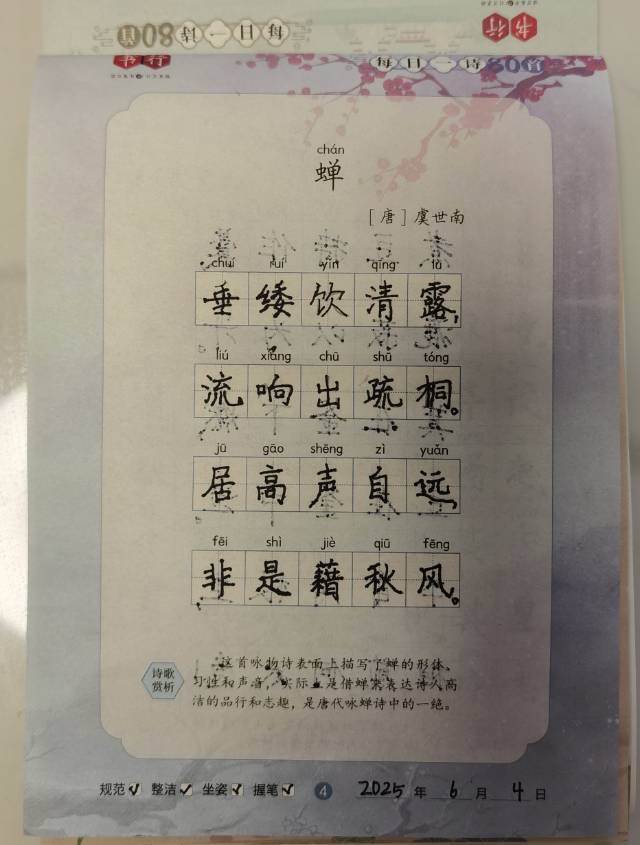 每日一诗80首
书行
书行
每日一诗80首
chán
蝉
[唐]虞世南
chuí ruí yǐn qīng lù
垂緌饮清露，
liú xiǎng chū shū tóng
流响出疏桐。
jū gāo shēng zì yuǎn
居高声自远，
fēi shì jiè qiū fēng
非是藉秋风。
诗歌
赏析
这首咏物诗表面上描写了蝉的形体、
习性和声音，实际上是借蝉来表达诗人高
洁的品行和志趣，是唐代咏蝉诗中的一绝。
规范✓ 整洁✓ 坐姿✓ 握笔✓ 4 2025年6月4日